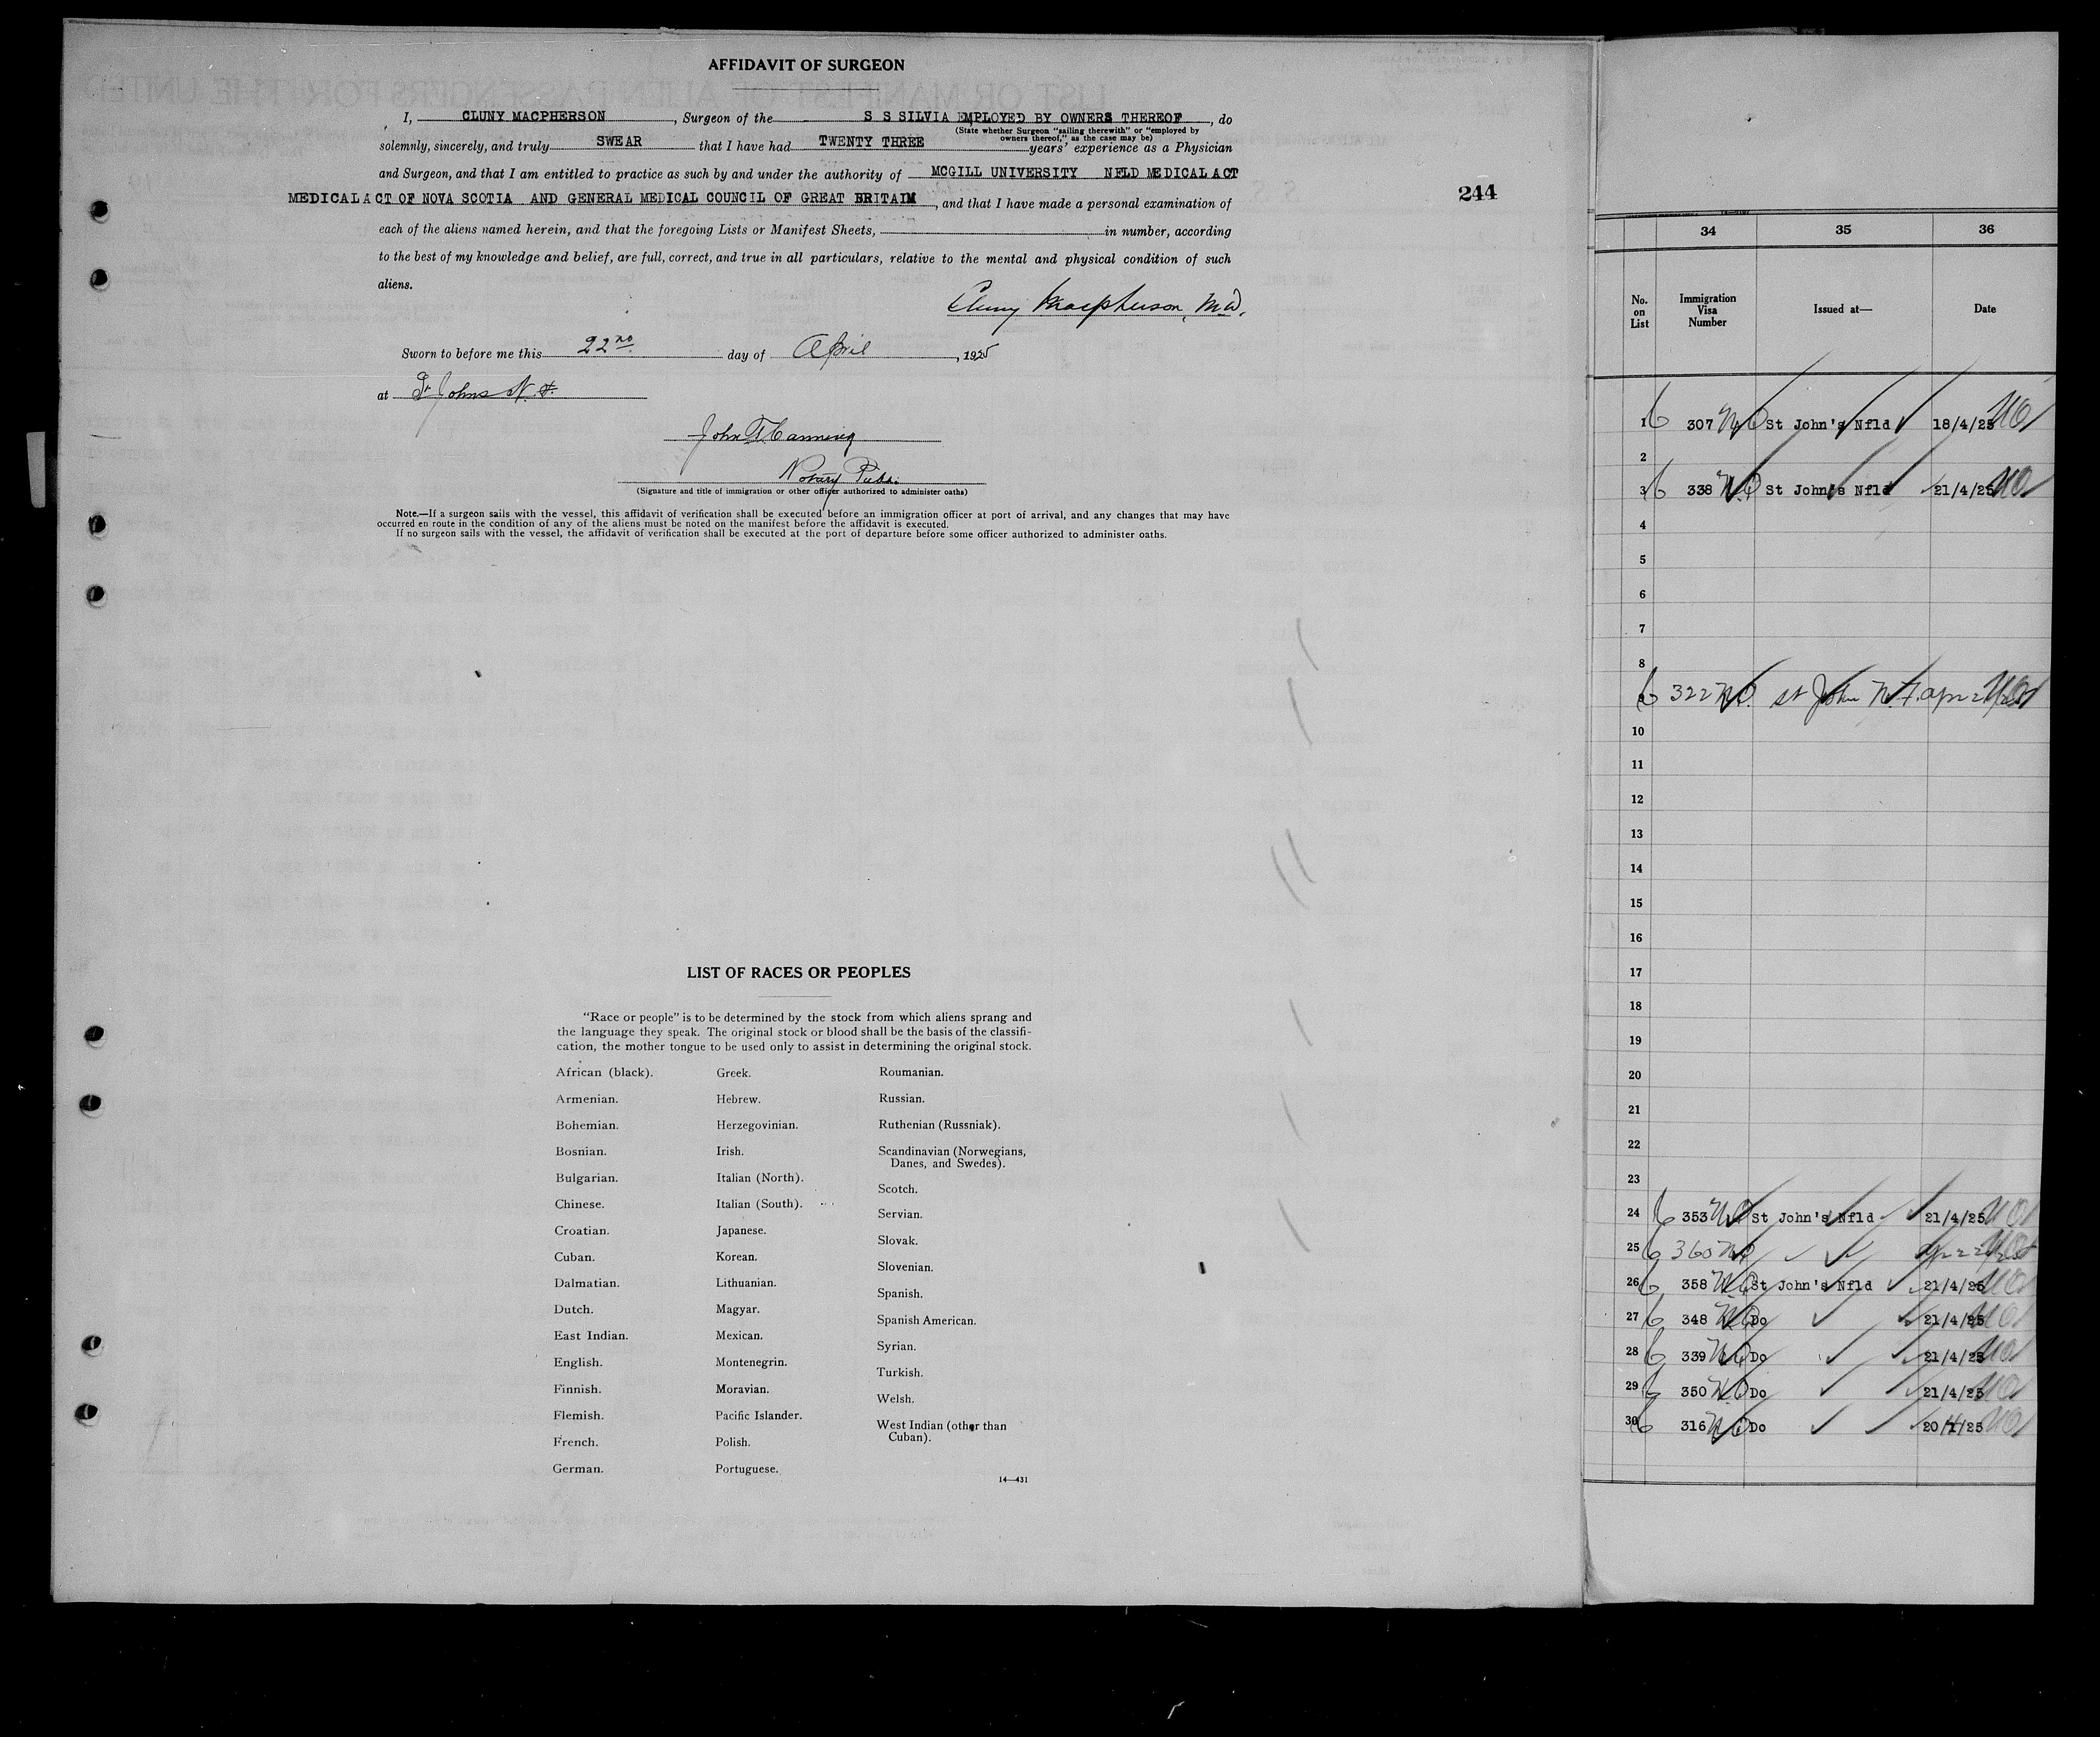 AFFIDAVIT OF SURGEON
I, CLUNY MACPHERSON, Surgeon of the S S SILVIA EMPLOYED BY OWNERS THEREOF, do
(State whether Surgeon "sailing therewith" or "employed by
owners thereof," as the case may be)
solemnly, sincerely, and truly SWEAR that I have had TWENTY THREE years' experience as a Physician
and Surgeon, and that I am entitled to practice as such by and under the authority of MCGILL UNIVERSITY NFLD MEDICAL ACT
MEDICAL ACT OF NOVA SCOTIA AND GENERAL MEDICAL COUNCIL OF GREAT BRITAIN, and that I have made a personal examination of
each of the aliens named herein, and that the foregoing Lists or Manifest Sheets, in number, according
to the best of my knowledge and belief, are full, correct, and true in all particulars, relative to the mental and physical condition of such
aliens.
Cluny Macpherson, M.D.
Sworn to before me this 22nd day of April, 1925
at St Johns N.F.
John
Notary Pub.
(Signature and title of immigration or other officer authorized to administer oaths)
Note.—If a surgeon sails with the vessel, this affidavit of verification shall be executed before an immigration officer at port of arrival, and any changes that may have
occurred en route in the condition of any of the aliens must be noted on the manifest before the affidavit is executed.
If no surgeon sails with the vessel, the affidavit of verification shall be executed at the port of departure before some officer authorized to administer oaths.
244
LIST OF RACES OR PEOPLES
"Race or people" is to be determined by the stock from which aliens sprang and
the language they speak. The original stock or blood shall be the basis of the classifi-
cation, the mother tongue to be used only to assist in determining the original stock.
African (black).
Armenian.
Bohemian.
Bosnian.
Bulgarian.
Chinese.
Croatian.
Cuban.
Dalmatian.
Dutch.
East Indian.
English.
Finnish.
Flemish.
French.
German.
Greek.
Hebrew.
Herzegovinian.
Irish.
Italian (North).
Italian (South).
Japanese.
Korean.
Lithuanian.
Magyar.
Mexican.
Montenegrin.
Moravian.
Pacific Islander.
Polish.
Portuguese.
Roumanian.
Russian.
Ruthenian (Russniak).
Scandinavian (Norwegians,
Danes, and Swedes).
Scotch.
Servian.
Slovak.
Slovenian.
Spanish.
Spanish American.
Syrian.
Turkish.
Welsh.
West Indian (other than
Cuban).
14—431
34 35 36
No. on List Immigration Visa Number Issued at— Date
1 307 St John's Nfld 18/4/25
2
3 338 St John's Nfld 21/4/25
4
5
6
7
8
9 322 St John N.F.
10
11
12
13
14
15
16
17
18
19
20
21
22
23
24 353 St John's Nfld 21/4/25
25 360
26 358 St John's Nfld 21/4/25
27 348 Do 21/4/25
28 339 Do 21/4/25
29 350 Do 21/4/25
30 316 Do 20/4/25